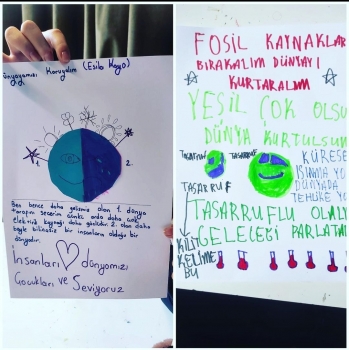 Dünyamızı Koruyalım (Esila Kaya)
1.
2.
Ben bence daha gelişmiş olan 1. dünya
yarapını seçerim çünkü orda daha çok
elektirik kaynağı gözüküyor. 2. olan daha
böyle bilinçsiz bir insanların olduğu bir
dünyadır.
İnsanları dünyamızı
Çocukları ve Seviyoruz
FOSİL KAYNAKLAR
BIRAKALIM DÜNYAYI
KURTARALIM
YEŞİL ÇOK OLSU
DÜNYA KURTULSUN
TASARRUF TASARRUF
KÜRESE
ISINMA YO
DÜNYADA
TEHLİKE YO
TASARRUF
TASARRUFLU OLALI
GELECEĞİ PARLATA
KİLİT
KELİME
BU